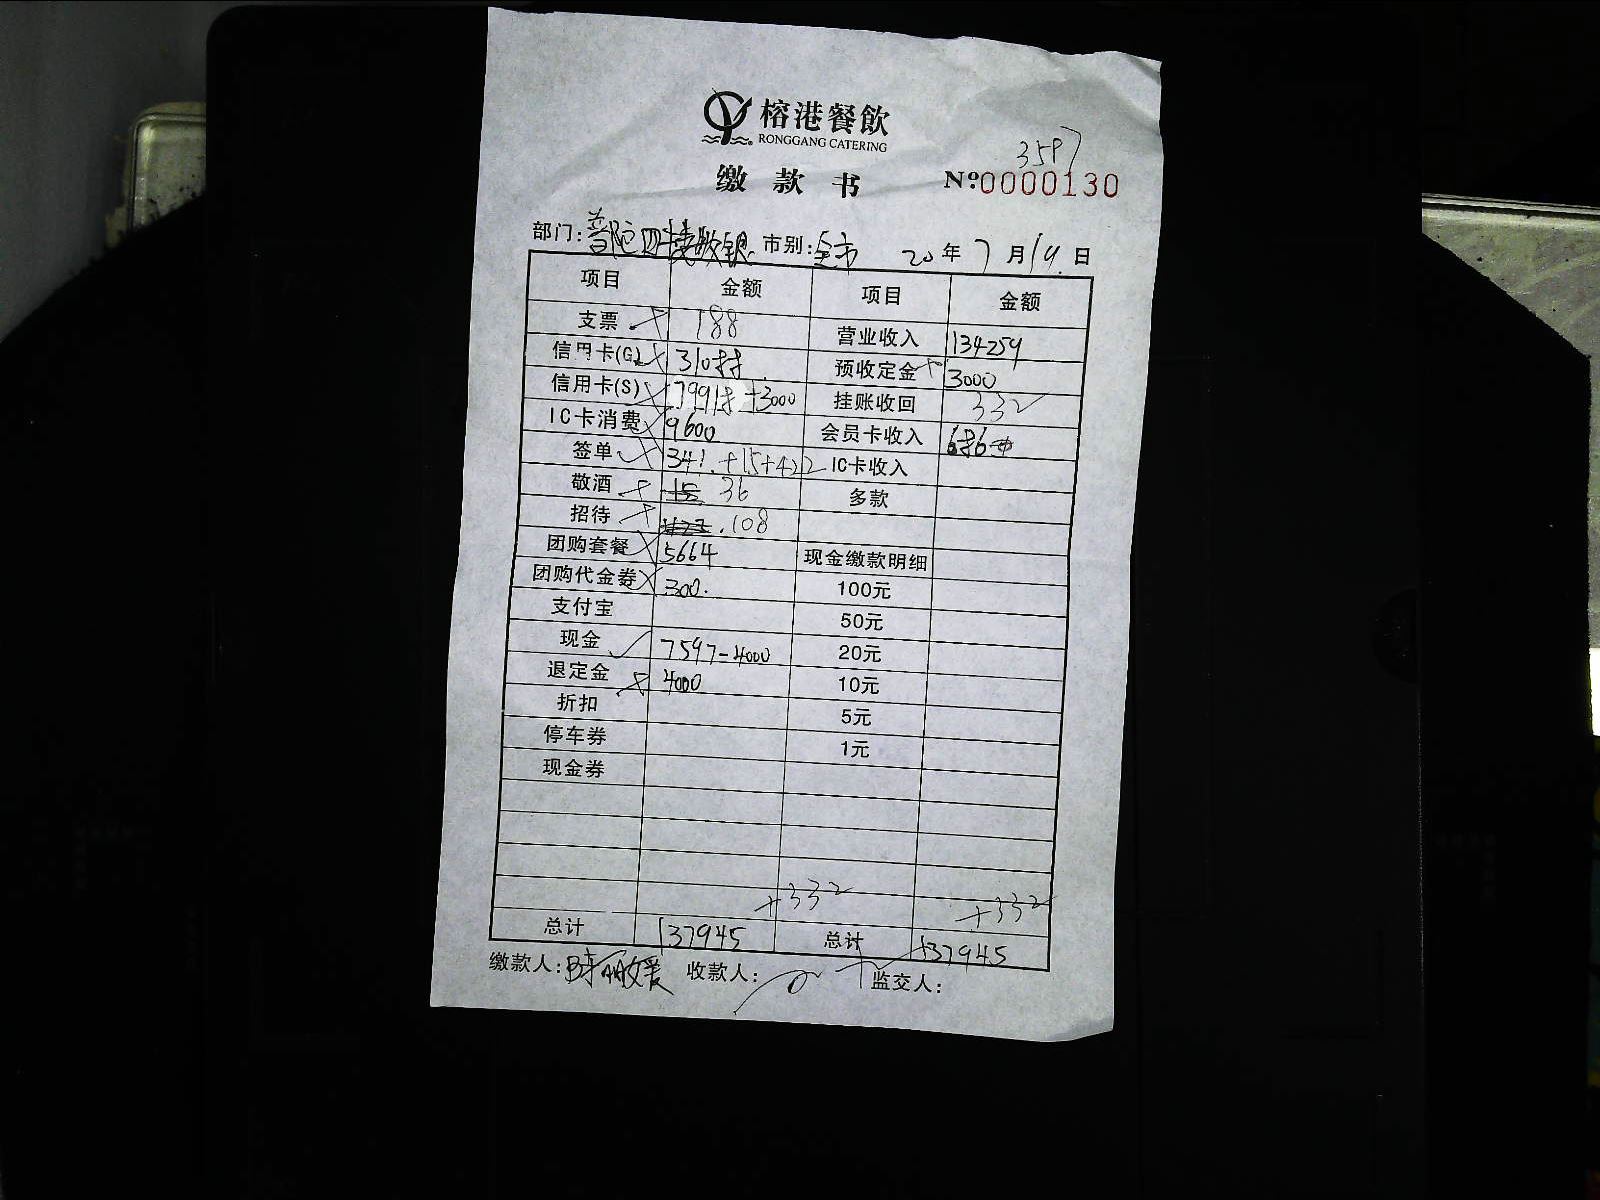 榕港餐飲
RONGGANG CATERING
3597
缴款书 №0000130
部门:普陀四楼收银 市别:全市 20年7月19日
项目 金额 项目 金额
支票 188 营业收入 134259
信用卡(G) 31088 预收定金 3000
信用卡(S) 79918+3000 挂账收回 332
IC卡消费 9600 会员卡收入 686
签单 341.+15+422 IC卡收入
敬酒 36 多款
招待 .108
团购套餐 5664 现金缴款明细
团购代金券 300. 100元
支付宝 50元
现金 7597-4000 20元
退定金 4000 10元
折扣 5元
停车券 1元
现金券
+332 +332
总计 137945 总计 137945
缴款人: 收款人: 监交人: